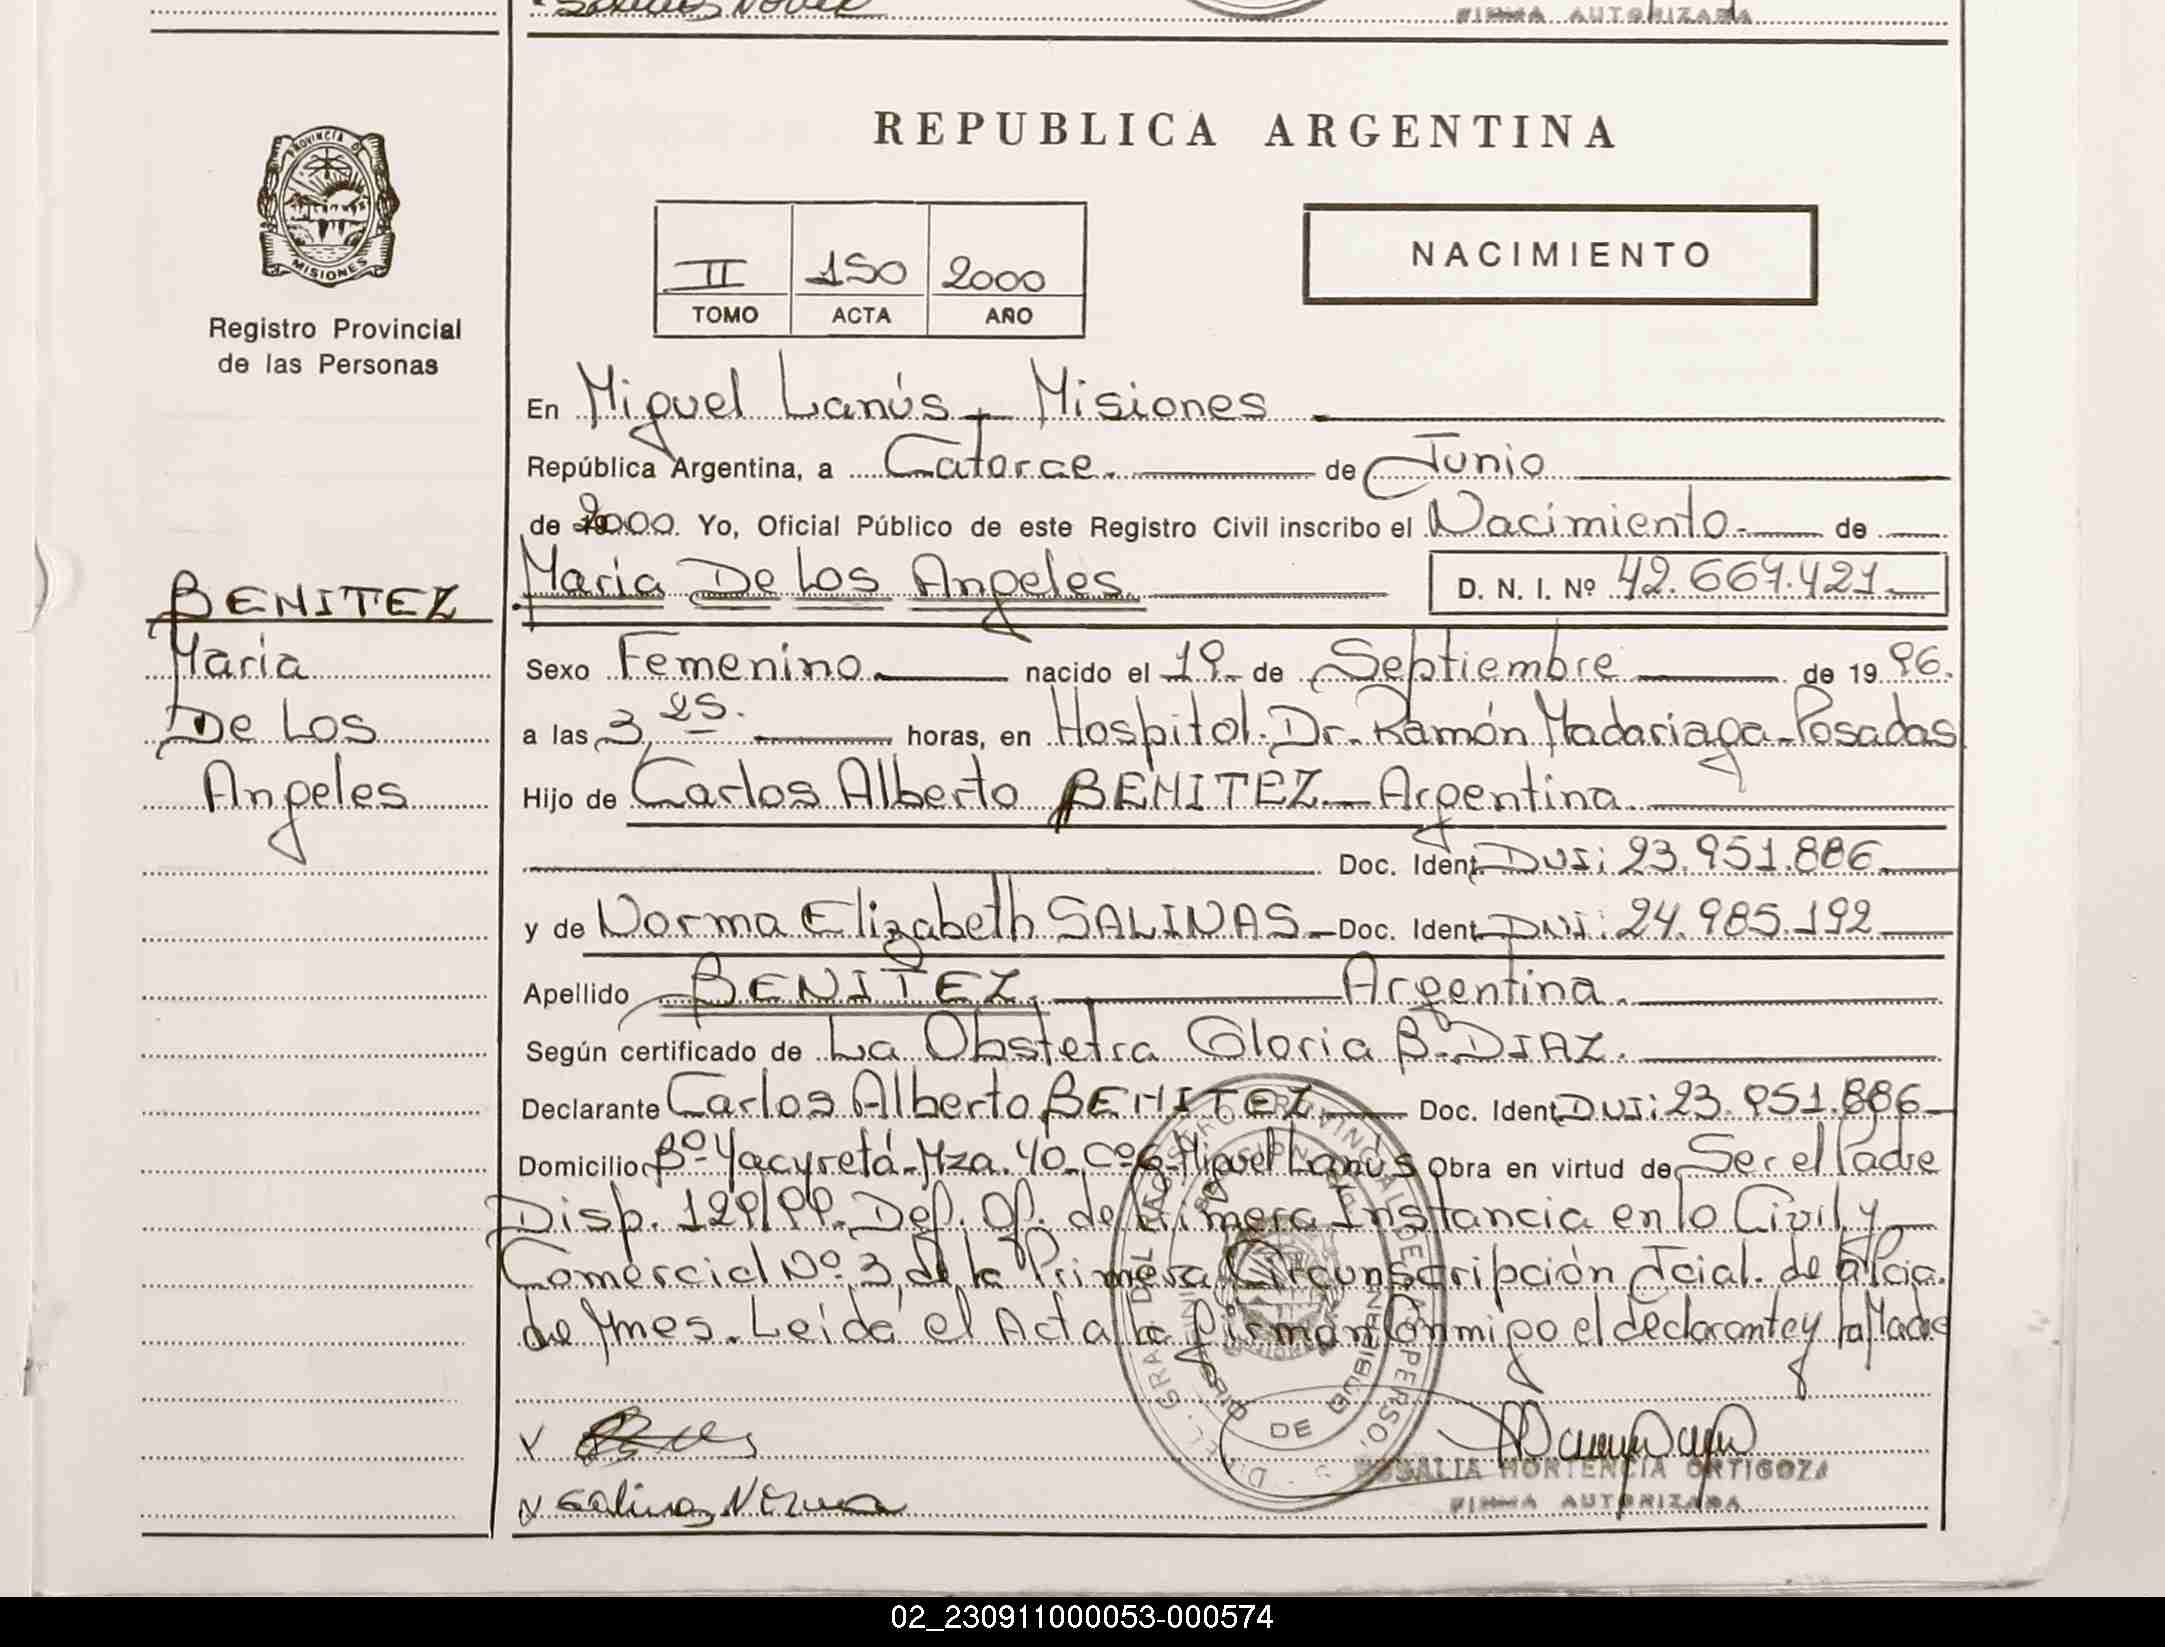 FIRMA AUTORIZADA
PROVINCIA DE
MISIONES
Registro Provincial
de las Personas
REPUBLICA ARGENTINA
NACIMIENTO
II 150 2000
TOMO ACTA AÑO
BENITEZ
Maria
De Los
Angeles
En Miguel Lanús - Misiones
República Argentina, a Catorce. de Junio
de 2000. Yo, Oficial Público de este Registro Civil inscribo el Nacimiento. de
Maria De Los Angeles D. N. I. Nº 42.667.421
Sexo Femenino nacido el 19 de Septiembre de 19 96.
a las 3,25. horas, en Hospital. Dr. Ramón Madariaga - Posadas
Hijo de Carlos Alberto BENITEZ - Argentina.
Doc. Ident. DNI: 23.951.886
y de Norma Elizabeth SALINAS - Doc. Ident. DNI: 24.985.192
Apellido BENITEZ. Argentina.
Según certificado de La Obstetra Gloria B. DIAZ.
Declarante Carlos Alberto BENITEZ Doc. Ident. DNI: 23.951.886
Domicilio Bº Yacyretá - Mza. 40 - Cº 6 - Miguel Lanús Obra en virtud de Ser el Padre
Disp. 129/99. Def. Of. de Primera Instancia en lo Civil y
Comercial Nº 3 de la Primera Circunscripción Jcial. de la Pcia.
de Mnes. Leída el Acta la firman Conmigo el declarante y la Madre
x
x Salinas Norma
ROSALIA HORTENCIA ORTIGOZA
FIRMA AUTORIZADA
02_230911000053-000574